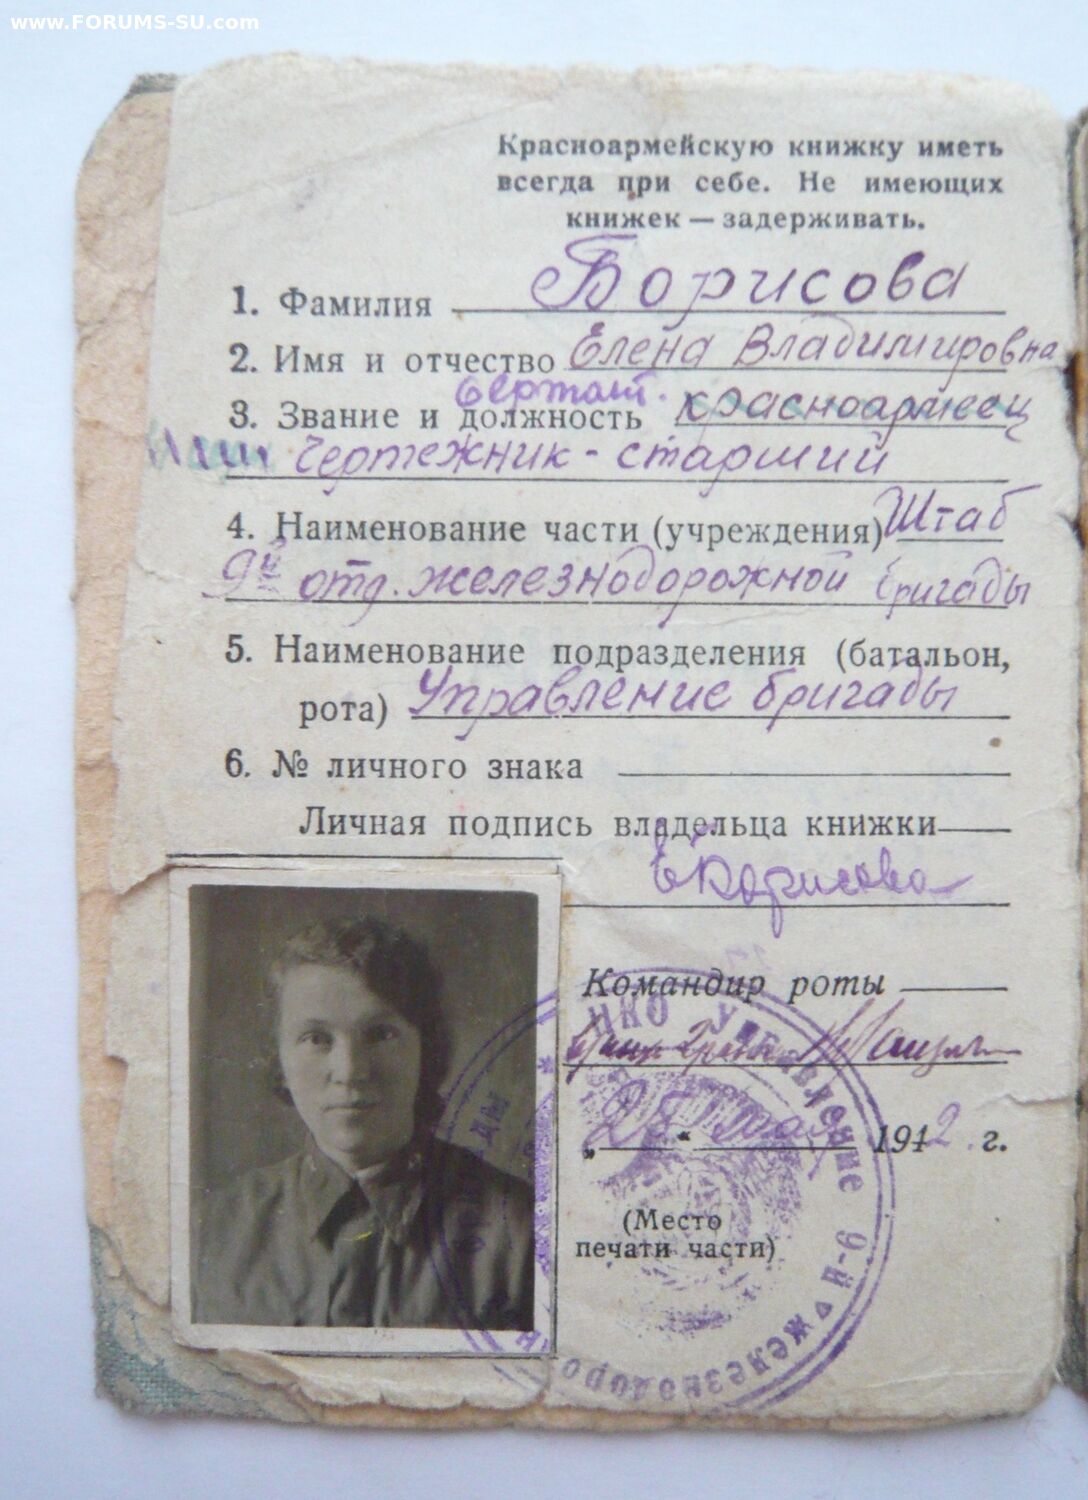 www.FORUMS-SU.com
Красноармейскую книжку иметь
всегда при себе. Не имеющих
книжек — задерживать.
1. Фамилия Борисова
2. Имя и отчество Елена Владимировна
Сержант.
3. Звание и должность красноармеец
чертежник - старший
4. Наименование части (учреждения) Штаб
9й отд. железнодорожной бригады
5. Наименование подразделения (батальон,
рота) Управление бригады
6. № личного знака
Личная подпись владельца книжки
ЕБорисова
Командир роты
„28“ мая 1942 г.
(Место
печати части)
НКО Управление 9-й железнодоро